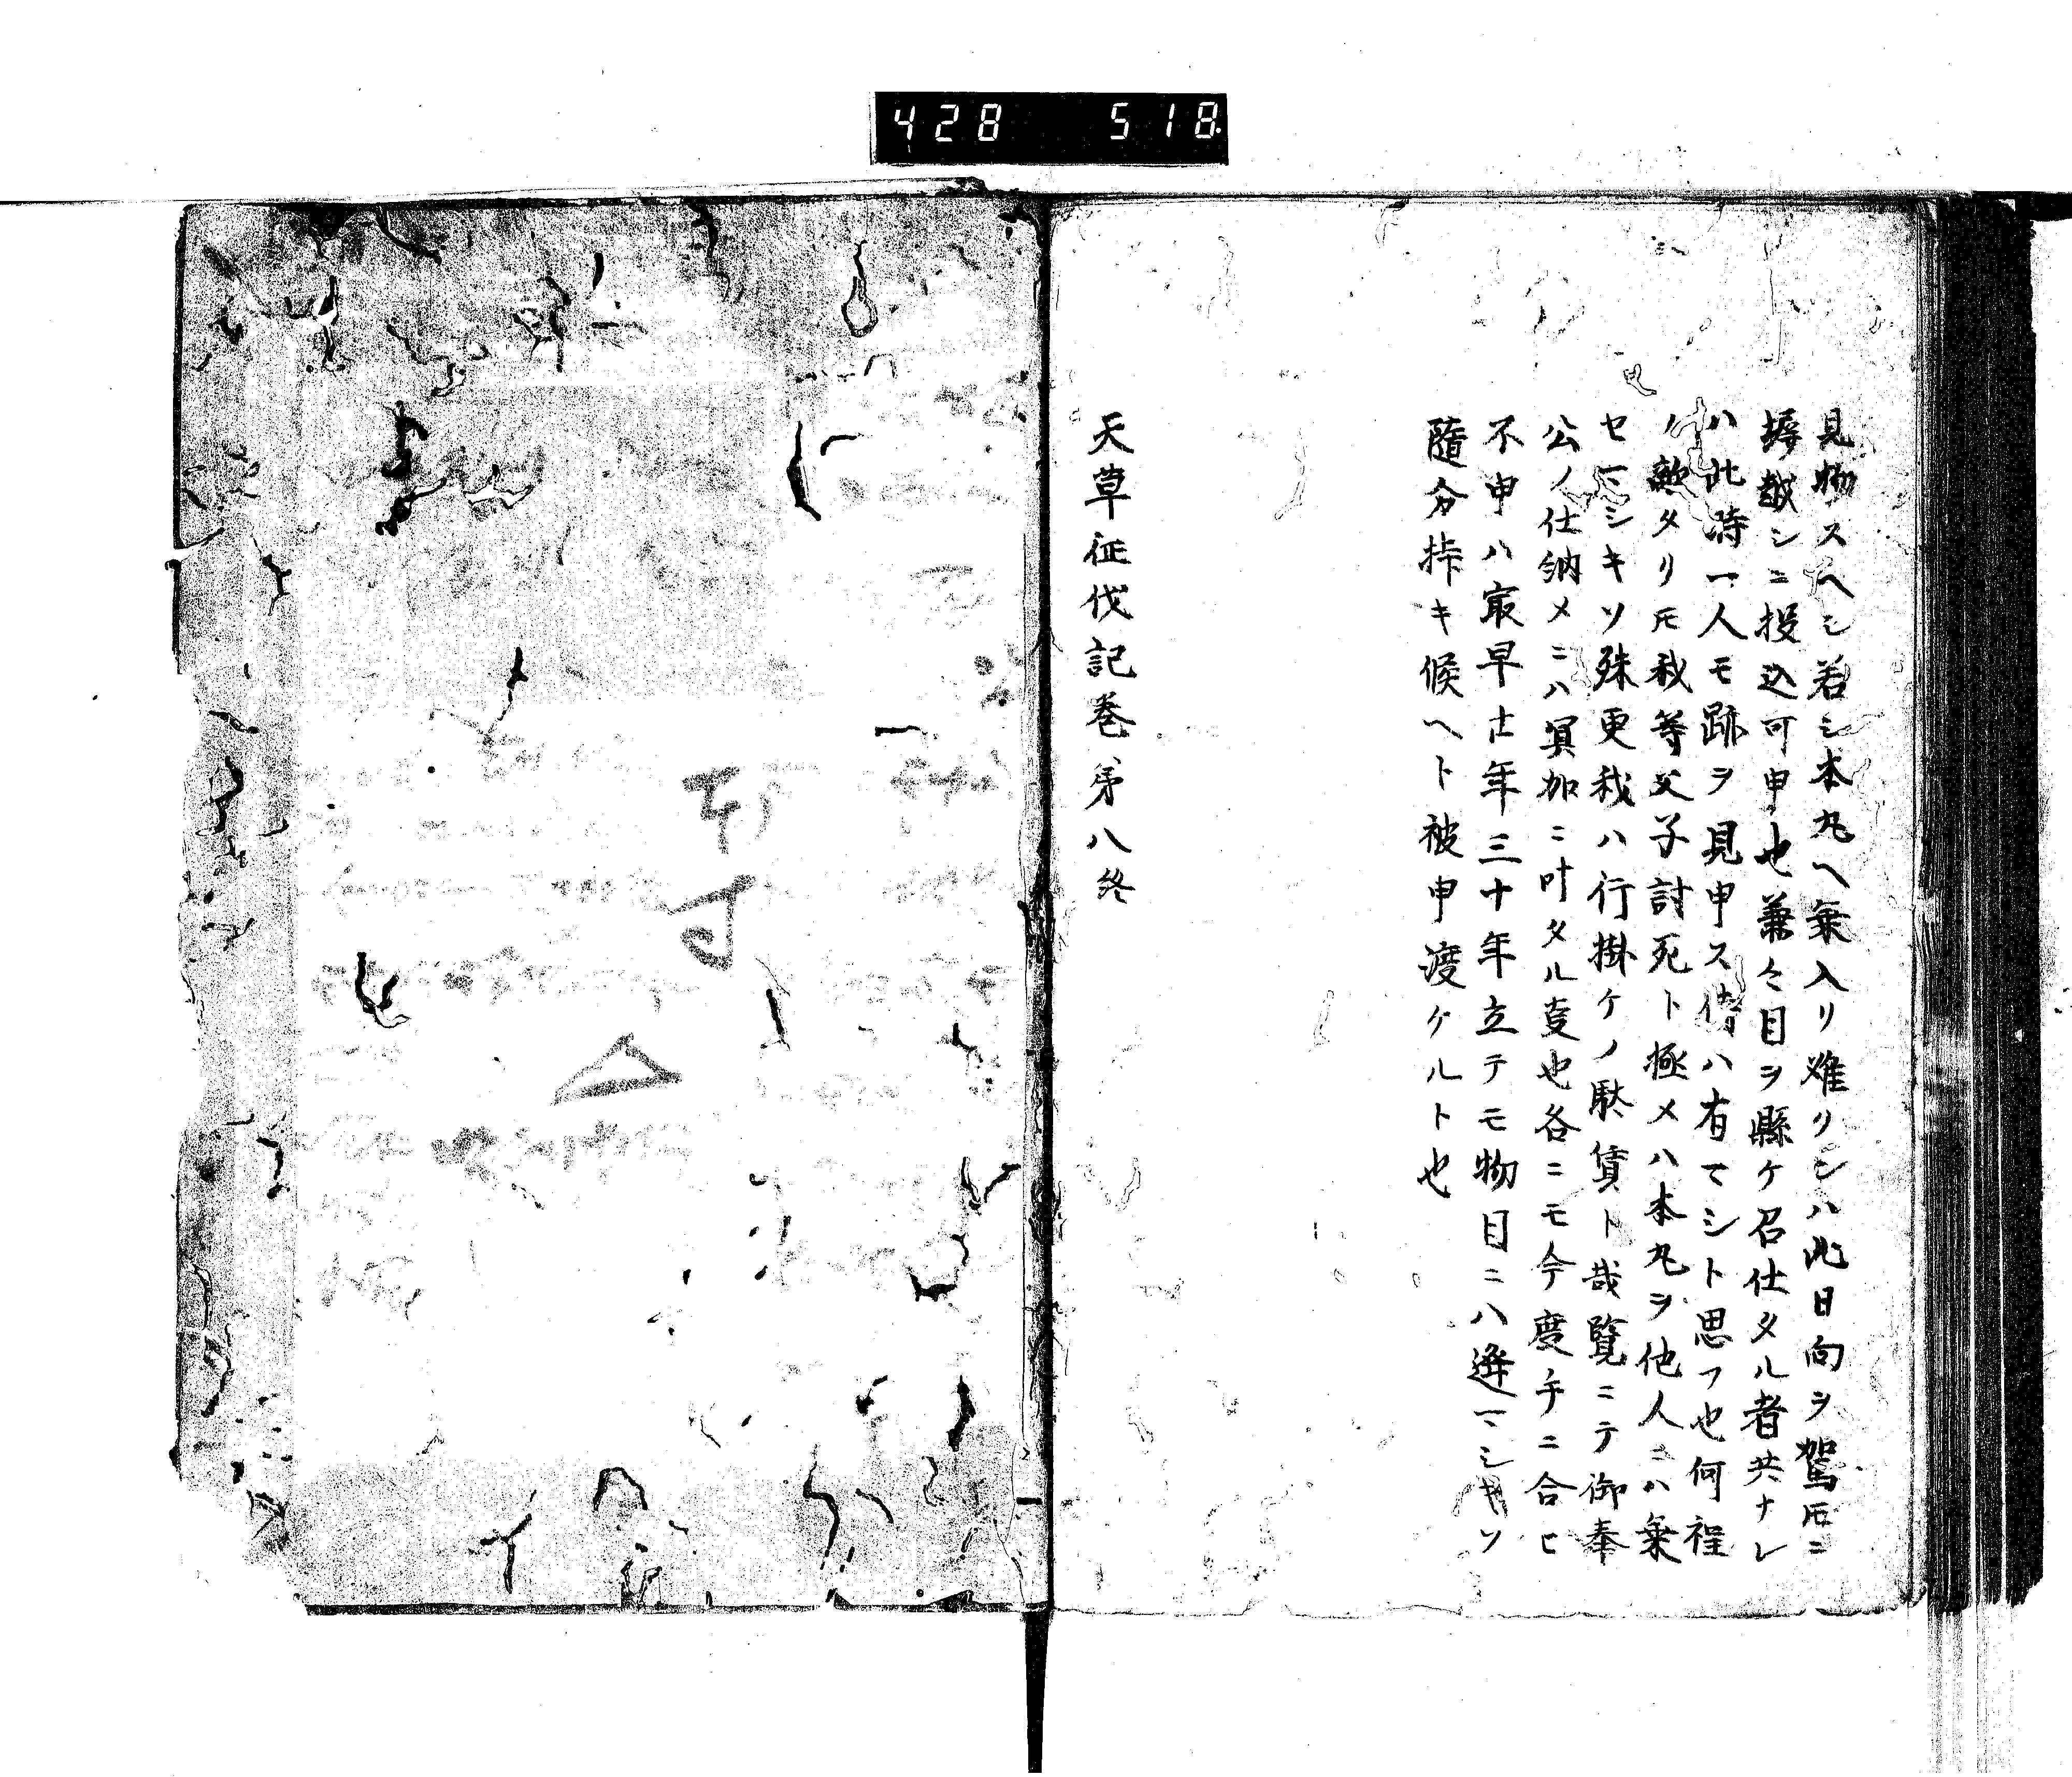 428 518
見物スヘシ若シ本丸ヘ乗入リ難クンハ此日向ヲ駕𪜈ニ
塀越シニ投込可申也兼々目ヲ懸ケ召仕タル者共ナレ
ハ此時一人モ跡ヲ見申ス侍ハ有マシト思フ也何程
ノ敵タリ𪜈我等父子討死ト極メハ本丸ヲ他人ニハ乗
セマシキソ殊更我ハ行掛ケノ駄賃ト哉覧ニテ御奉
公ノ仕納メニハ冥加ニ叶タル叓也各ニモ今度手ニ合ヒ
不申ハ最早廿年三十年立テモ物目ニハ逢マシキソ
随分拵キ候ヘト被申渡ケルト也
天草征伐記巻第八終